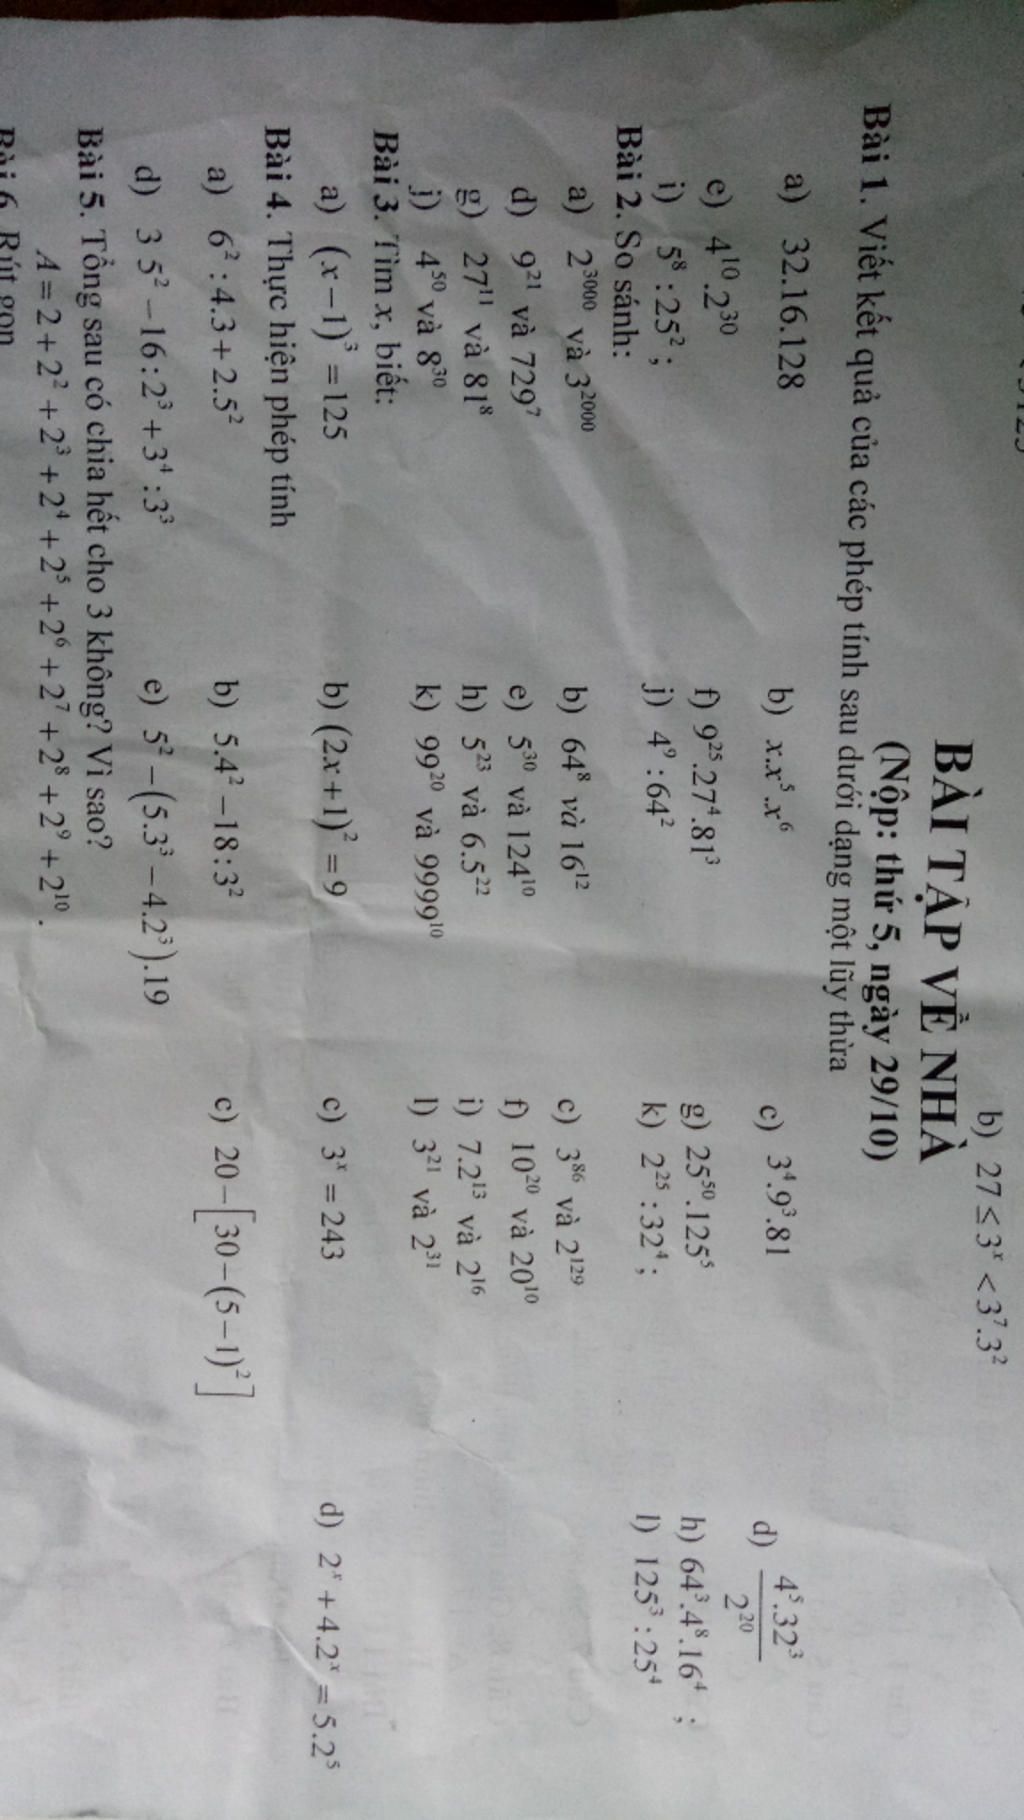 b) 27 ≤ 3ˣ < 3⁷.3²
BÀI TẬP VỀ NHÀ
(Nộp: thứ 5, ngày 29/10)
Bài 1. Viết kết quả của các phép tính sau dưới dạng một lũy thừa
a) 32.16.128 b) x.x⁵.x⁶ c) 3⁴.9³.81 d) 4⁵.32³/2²⁰
e) 4¹⁰.2³⁰ f) 9²⁵.27⁴.81³ g) 25⁵⁰.125⁵ h) 64³.4⁸.16⁴ ;
i) 5⁸ : 25² ; j) 4⁹ : 64² k) 2²⁵ : 32⁴ ; l) 125³ : 25⁴
Bài 2. So sánh:
a) 2³⁰⁰⁰ và 3²⁰⁰⁰ b) 64⁸ và 16¹² c) 3⁸⁶ và 2¹²⁹
d) 9²¹ và 729⁷ e) 5³⁰ và 124¹⁰ f) 10²⁰ và 20¹⁰
g) 27¹¹ và 81⁸ h) 5²³ và 6.5²² i) 7.2¹³ và 2¹⁶
j) 4⁵⁰ và 8³⁰ k) 99²⁰ và 9999¹⁰ l) 3²¹ và 2³¹
Bài 3. Tìm x, biết:
a) (x−1)³ = 125 b) (2x+1)² = 9 c) 3ˣ = 243 d) 2ˣ + 4.2ˣ = 5.2⁵
Bài 4. Thực hiện phép tính
a) 6² : 4.3 + 2.5² b) 5.4² − 18 : 3² c) 20 − [30 − (5−1)²]
d) 3 5² − 16 : 2³ + 3⁴ : 3³ e) 5² − (5.3³ − 4.2³).19
Bài 5. Tổng sau có chia hết cho 3 không? Vì sao?
A = 2 + 2² + 2³ + 2⁴ + 2⁵ + 2⁶ + 2⁷ + 2⁸ + 2⁹ + 2¹⁰ .
Bài 6 Rút gọn